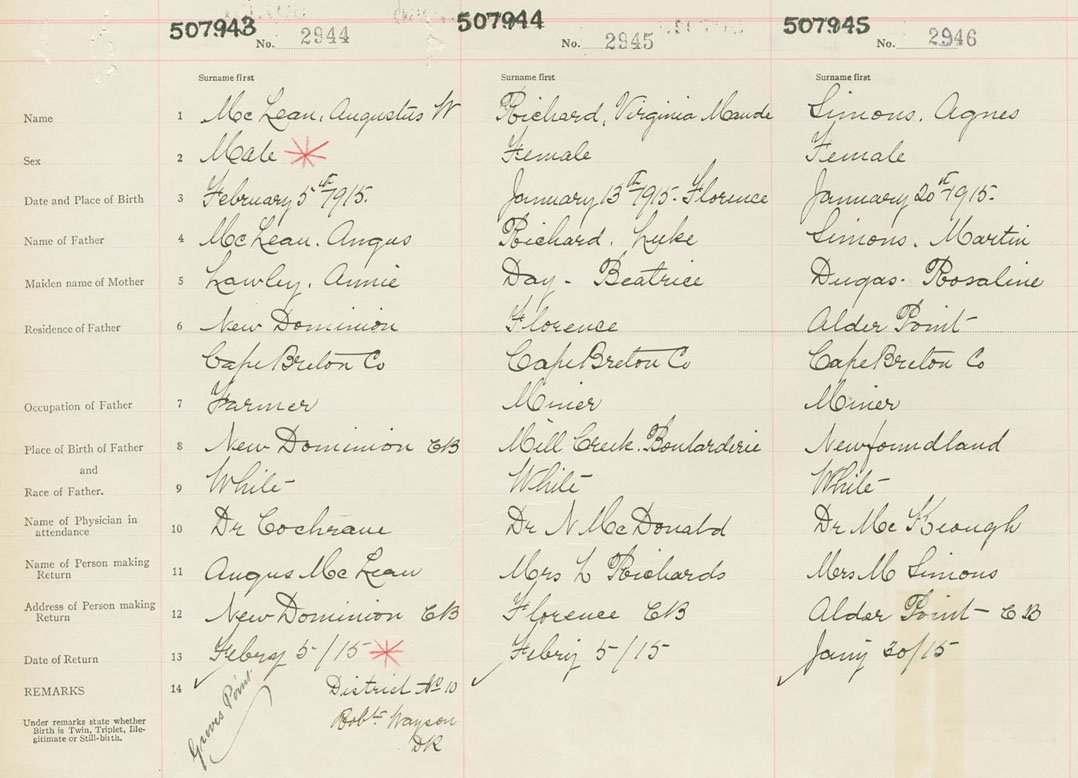 507943 507944 507945
No. 2944 No. 2945 No. 2946
Surname first Surname first Surname first
Name 1 McLean, Augustus W Richard, Virginia Maude Simons, Agnes
Sex 2 Male Female Female
Date and Place of Birth 3 February 5th 1915. January 13th 1915 - Florence January 20th 1915 -
Name of Father 4 McLean, Angus Richard, Luke Simons, Martin
Maiden name of Mother 5 Lawley, Annie Day - Beatrice Dugas - Rosaline
Residence of Father 6 New Dominion Florence Alder Point
Cape Breton Co Cape Breton Co Cape Breton Co
Occupation of Father 7 Farmer Miner Miner
Place of Birth of Father 8 New Dominion CB Mill Creek, Boularderie Newfoundland
and
Race of Father. 9 White White White
Name of Physician in
attendance 10 Dr Cochrane Dr N McDonald Dr McKeough
Name of Person making
Return 11 Angus McLean Mrs L Richards Mrs M Simons
Address of Person making
Return 12 New Dominion CB Florence CB Alder Point - CB
Date of Return 13 Febry 5/15 Febry 5/15 Jany 30/15
REMARKS 14 District No 10
Under remarks state whether
Birth is Twin, Triplet, Ille-
gitimate or Still-birth.
Groves Point
Robt
DR